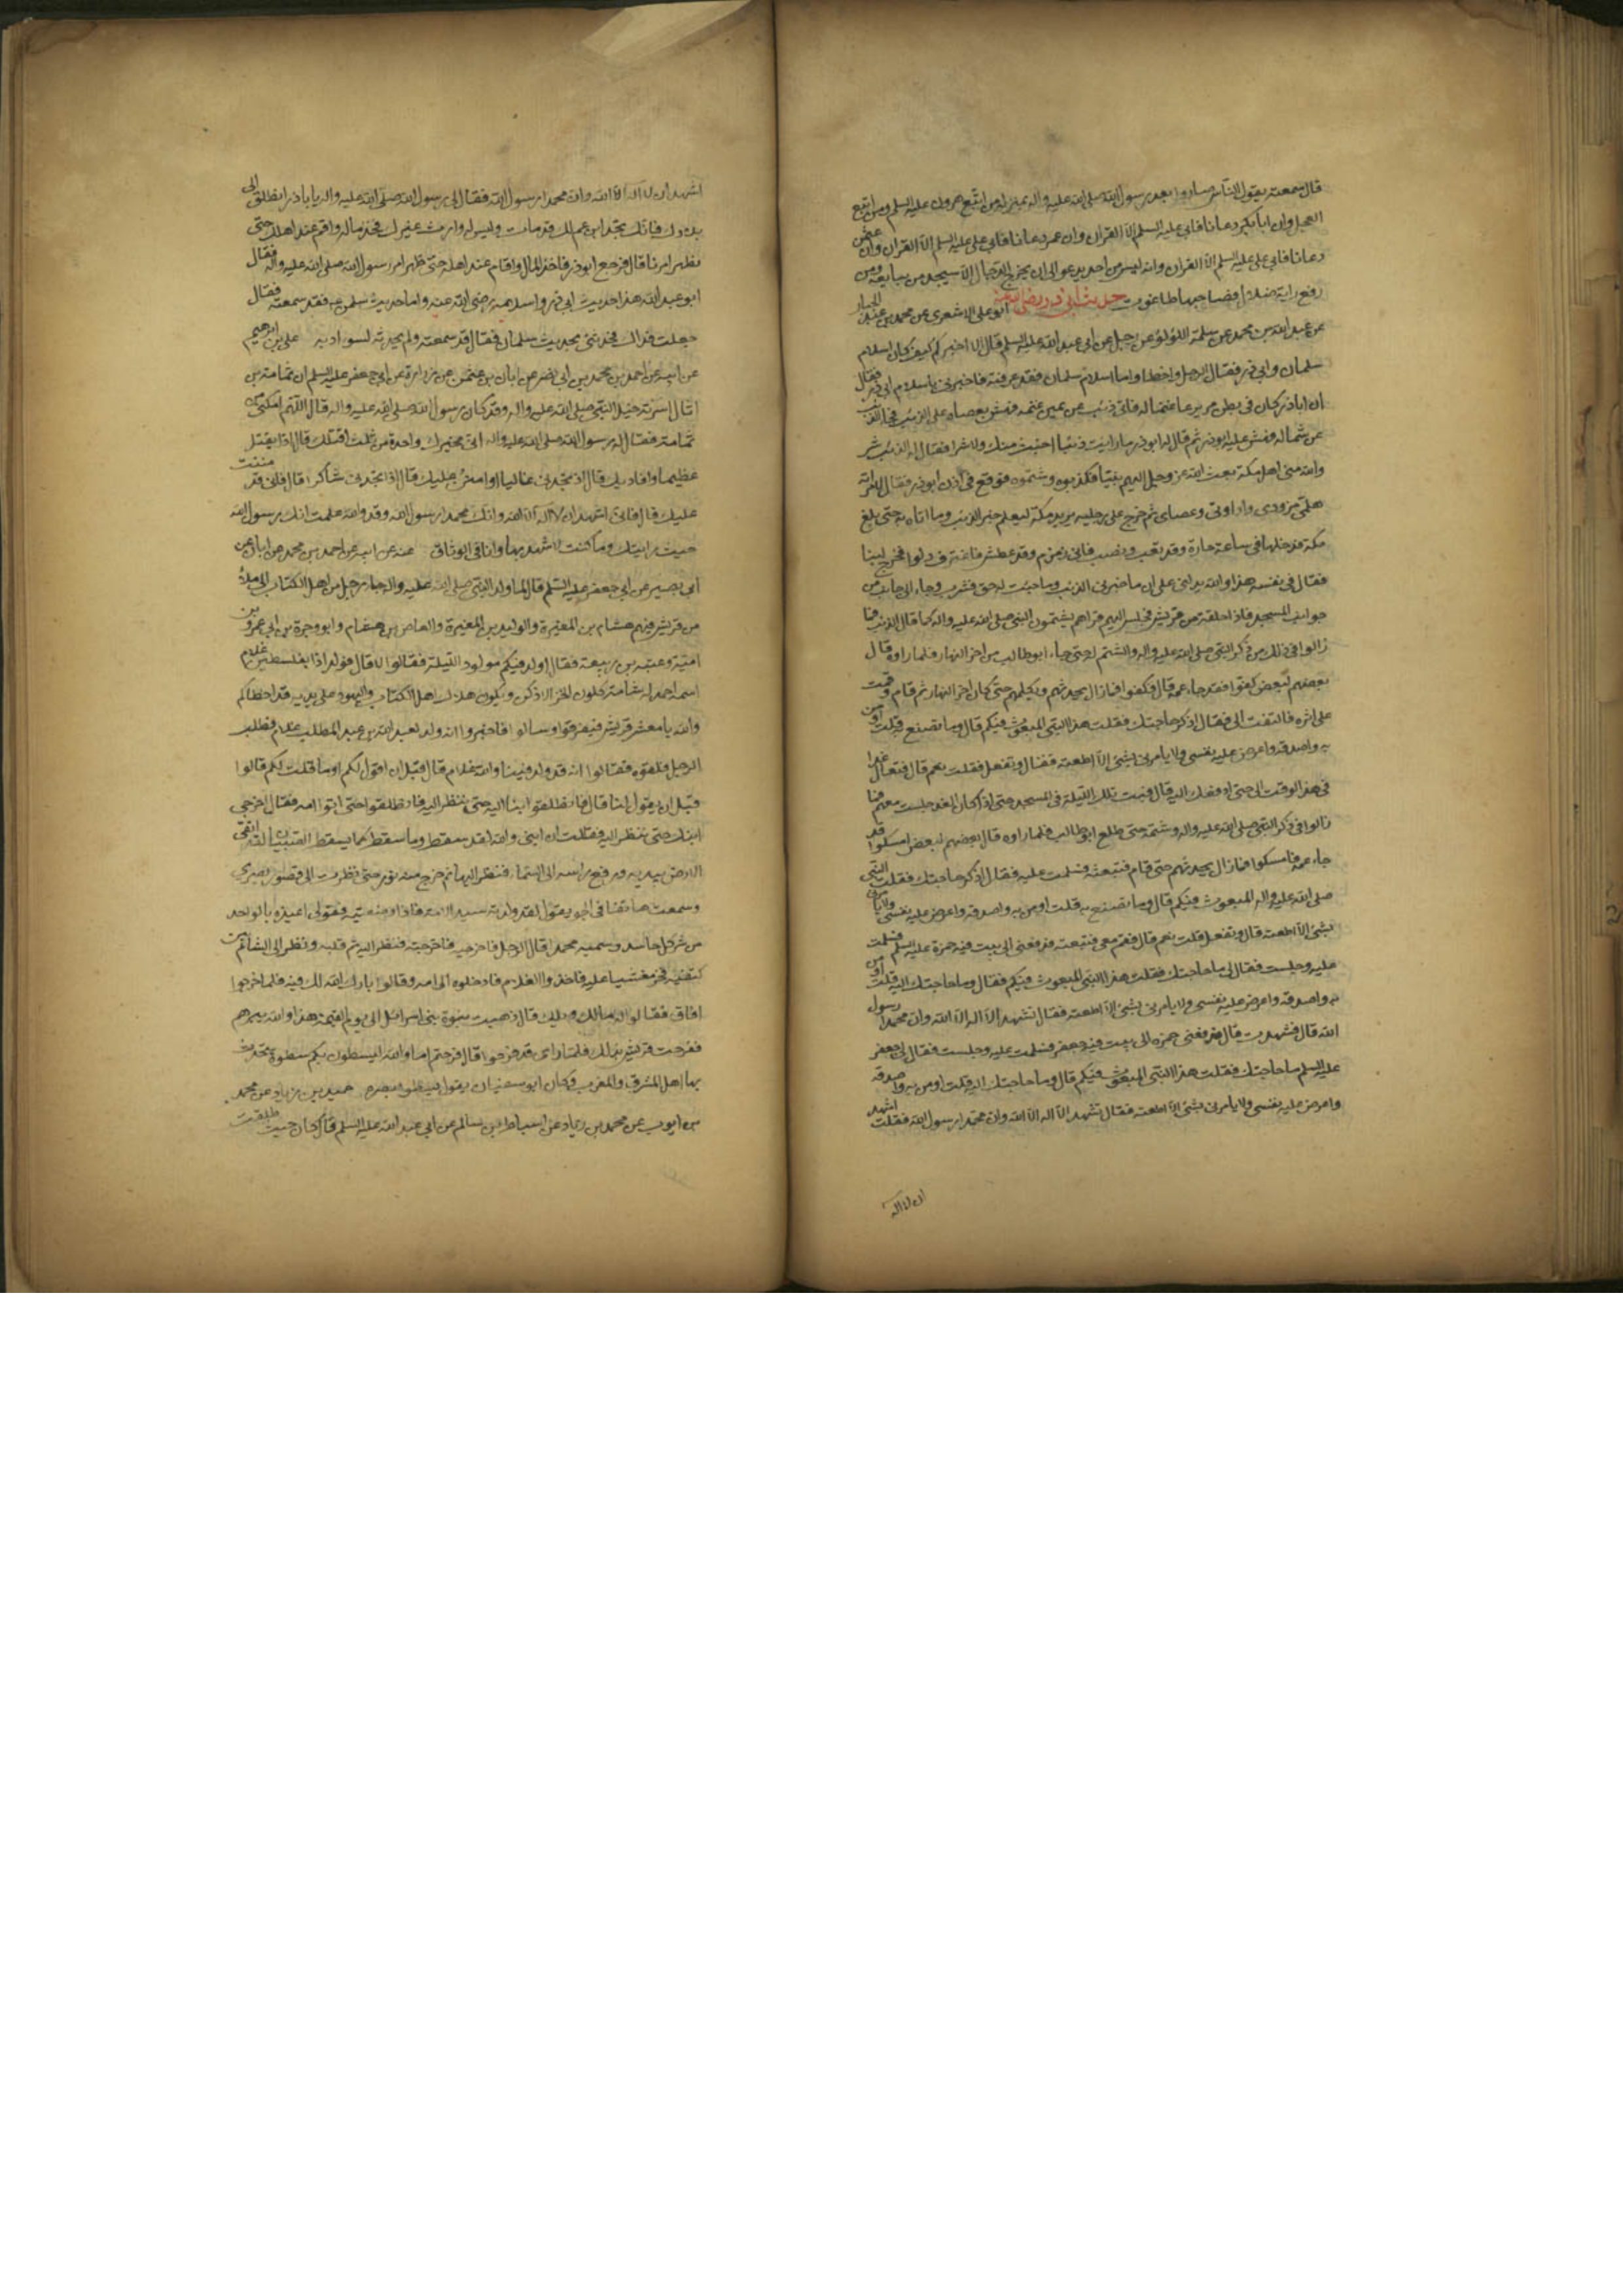 قال سمعته يقول الناس صاروا بعد رسول الله صلى الله عليه واله بمنزلة من اتبع هرون عليه السلم ومن اتبع
العجل وان ابا بكر دعا فابى على عليه السلم الا القران وان عمر دعا فابى على عليه السلم الا القران وان عثمن
دعا فابى على عليه السلم الا القران وانه ليس من احد يدعو الى ان يخرج الدجال الا سيجد من يبايعه ومن
رفع راية ضلالة فصاحبها طاغوت حديث ابى ذر رضى الله عنه ابو على الاشعرى عن محمد بن عبد الجبار
عن عبد الله بن محمد عن سلمة اللؤلؤى عن رجل عن ابى عبد الله عليه السلم قال الا اخبركم كيف كان اسلام
سلمان وابى ذر فقال الرجل واخطا واما اسلام سلمان فقد عرفته فاخبرنى باسلام ابى ذر فقال
ان اباذر كان فى بطن مر يرعا غنما له فاتى ذئب عن يمين غنمه فهش بعصاه على الذئب فجا الذئب
عن شماله فهش عليه ابوذر ثم قال له ابوذر ما رايت ذئبا اخبث منك ولا شرا فقال له الذئب شر
والله منى اهل مكة بعث الله عز وجل اليهم نبيا فكذبوه وشتموه فوقع فى اذن ابوذر فقال لامراته
هلمى مزودى واداوتى وعصاى ثم خرج على رجليه يريد مكة ليعلم خبر الذئب وما اتاه به حتى بلغ
مكة فدخلها فى ساعة حارة وقد تعب ونصب فاتى زمزم وقد عطش فاغترف دلوا فخرج لبنا
فقال فى نفسه هذا والله يدلنى على ان ما خبرنى الذئب وما جئت له حق فشرب وجاء الى جانب من
جوانب المسجد فاذا حلقة من قريش فجلس اليهم فراهم يشتمون النبى صلى الله عليه واله كما قال الذئب فما
زالوا فى ذلك من ذكر النبى صلى الله عليه واله والشتم له حتى جاء ابوطالب من اخر النهار فلما راوه قال
بعضهم لبعض كفوا فقد جاء عمه قال فكفوا فما زال يحدثهم ويكلمهم حتى كان اخر النهار ثم قام وقمت
على اثره فالتفت الى فقال اذكر حاجتك فقلت هذا النبى المبعوث فيكم قال وما تصنع به قلت اومن
به واصدقه واعرض عليه نفسى ولا يامرنى بشئ الا اطعته فقال وتفعل فقلت نعم قال فتعال غدا
فى هذا الوقت الى حتى ادفعك اليه قال فبت تلك الليلة فى المسجد حتى اذا كان الغد جلست معهم فما
زالوا فى ذكر النبى صلى الله عليه واله وشتمه حتى طلع ابوطالب فلما راوه قال بعضهم لبعض امسكوا قد
جاء عمه فامسكوا فما زال يحدثهم حتى قام فتبعته فسلمت عليه فقال اذكر حاجتك فقلت النبى
صلى الله عليه واله المبعوث فيكم قال وما تصنع به قلت اومن به واصدقه واعرض عليه نفسى ولا يامرنى
بشئ الا اطعته قال وتفعل قلت نعم قال فقم معى فتبعته فدفعنى الى بيت فيه حمزة عليه السلم فسلمت
عليه وجلست فقال لى ما حاجتك فقلت هذا النبى المبعوث فيكم فقال وما حاجتك اليه قلت اومن
به واصدقه واعرض عليه نفسى ولا يامرنى بشئ الا اطعته فقال تشهد الا اله الا الله وان محمدا رسول
الله قال فشهدت قال فدفعنى حمزه الى بيت فيه جعفر فسلمت عليه وجلست فقال لى جعفر
عليه السلم ما حاجتك فقلت هذا النبى المبعوث فيكم قال وما حاجتك اليه قلت اومن به واصدقه
واعرض عليه نفسى ولا يامرنى بشئ الا اطعته فقال تشهد الا اله الا الله وان محمدا رسول الله فقلت اشهد
ان لا اله
اشهد ان لا اله الا الله وان محمدا رسول الله فقال لى رسول الله صلى الله عليه واله يا باذر انطلق الى
بلادك فانك تجد ابن عم لك قد مات وليس له وارث غيرك فخذ ماله واقم عند اهلك حتى
يظهر امرنا قال فرجع ابوذر فاخذ المال واقام عند اهله حتى ظهر امر رسول الله صلى الله عليه واله فقال
ابو عبد الله هذا حديث ابى ذر واسلامه رضى الله عنه واما حديث سلمن فقد سمعته فقال
جعلت فداك فحدثنى بحديث سلمان فقال قد سمعته ولم يحدثه لسوء ادبه على بن ابرهيم
عن ابيه عن احمد بن محمد بن ابى نصر عن ابان بن عثمن عن زرارة عن ابى جعفر عليه السلم ان ثمامة بن
اثال اسرته خيل النبى صلى الله عليه واله وقد كان رسول الله صلى الله عليه واله قال اللهم امكنى من
ثمامة فقال له رسول الله صلى الله عليه واله انى مخيرك واحدة من ثلث اقتلك قال اذا تقتل
عظيما وافاديك قال اذ تجدنى غاليا او امن عليك قال اذا تجدنى شاكرا قال فانى قد مننت
عليك قال فانى اشهد ان لا اله الا الله وانك محمد رسول الله وقد والله علمت انك رسول الله
حيث رايتك وما كنت لاشهد بها وانا فى الوثاق عنه عن ابيه عن احمد بن محمد عن ابان عن
ابى بصير عن ابى جعفر عليه السلم قال لما ولد النبى صلى الله عليه واله جاء رجل من اهل الكتاب الى ملأ
من قريش فيهم هشام بن المغيرة والوليد بن المغيرة والعاص بن هشام وابو وجزة بن ابى عمرو بن
امية وعتبه بن ربيعة فقال اولد فيكم مولود الليلة فقالوا لا قال فولد اذا بفلسطين غلام
اسمه احمد له شامة كلون الخز الادكن ويكون هلاك اهل الكتاب واليهود على يديه قد اخطاكم
والله يا معشر قريش فتفرقوا وسالوا فاخبروا انه ولد لعبد الله بن عبد المطلب غلام فطلب
الرجل فلقوه فقالوا انه قد ولد فينا والله غلام قال قبل ان اقول لكم او بعد ما قلت لكم قالوا
قبل ان تقول لنا قال فانطلقوا بنا اليه حتى ننظر اليه فانطلقوا حتى اتوا امه فقال اخرجى
ابنك حتى ننظر اليه فقالت ان ابنى والله لقد سقط وما سقط كما يسقط الصبيان لقد اتقى
الارض بيديه ورفع راسه الى السماء فنظر اليها ثم خرج منه نور حتى نظرت الى قصور بصرى
وسمعت هاتفا فى الجو يقول لقد ولدته سيد الامة فاذا وضعتيه فقولى اعيذه بالواحد
من شر كل حاسد وسميه محمدا قال الرجل فاخرجيه فاخرجته فنظر اليه ثم قلبه ونظر الى الشامة بين
كتفيه فخر مغشيا عليه فاخذوا الغلام فادخلوه الى امه وقالوا بارك الله لك فيه فلما خرجوا
افاق فقالوا له مالك ويلك قال ذهبت نبوة بنى اسرائيل الى يوم القيمة هذا والله يبيرهم
ففرحت قريش بذلك فلما راهم قد فرحوا قال فرحتم اما والله ليسطون بكم سطوة يتحدث
بها اهل المشرق والمغرب وكان ابو سفيان يقول يسطو بمصره حميد بن زياد عن محمد
بن ايوب عن محمد بن زياد عن اسباط بن سالم عن ابى عبد الله عليه السلم قال كان حيث طلقت